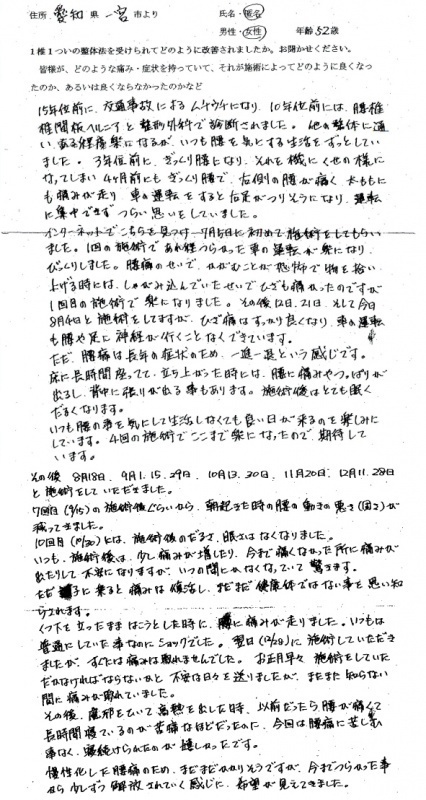 住所 愛知県 一宮市より 氏名・匿名
男性・女性 年齢52歳
1椎1ついの整体法を受けられてどのように改善されましたか。お聞かせください。
皆様が、どのような痛み・症状を持っていて、それが施術によってどのように良くなっ
たのか、あるいは良くならなかったのかなど
15年位前に、交通事故によるムチウチになり、10年位前には、腰椎
椎間板ヘルニアと整形外科で診断されました。他の整体に通
い、ある程度楽になるが、いつも腰を気にする生活をずっとしてい
ました。3年位前に、ぎっくり腰になり、それを機にくせの様に
なってしまい4ヶ月前にもぎっくり腰で、右側の腰が痛く、太ももに
も痛みが走り、車の運転をすると右足がつりそうになり、運転
に集中できずつらい思いをしていました。
インターネットでこちらを見つけ、7月5日に初めて施術をしてもらい
ました。1回の施術であれ程つらかった車の運転が楽になり、
びっくりしました。腰痛のせいで、かがむことが恐怖で物を拾い
上げる時には、しゃがみ込んでいたせいでひざも痛かったのですが
1回目の施術で楽になりました。その後12日、21日、そして今日
8月4日と施術をしてますが、ひざ痛はすっかり良くなり、車の運転
も腰や足に神経が行くことなくできています。
ただ、腰痛は長年の症状のため、一進一退という感じです。
床に長時間座ってて、立ち上がった時には、腰に痛みやつっぱりが
出るし、背中に張りが出る事もあります。施術後はとても眠く
だるくなります。
いつも腰の事を気にして生活しなくても良い日が来るのを楽しみに
しています。4回の施術でここまで楽になったので、期待して
います。
その後 8月18日、9月1.15.29日、10月13.30日、11月20日、12月11.28日
と施術をしていただきました。
7回目(9/15)の施術後ぐらいから、朝起きた時の腰の動きの悪さ(固さ)が
減ってきました。
10回目(10/30)には、施術後のだるさ、眠さはなくなりました。
いつも、施術後は、少し痛みが増したり、今まで痛くなかった所に痛みが
出たりして不安になりますが、いつの間にかなくなっていて驚きます。
ただ調子に乗ると痛みは復活し、まだまだ健康体ではない事を思い知
らされます。
くつ下を立ったままはこうとした時に、腰に痛みが走りました。いつもは
普通にしていた事なのにショックでした。翌日(12/28)に施術していただき
ましたが、すぐには痛みは取れませんでした。お正月早々施術をしていた
だかなければならないかと不安な日々を送りましたが、またまた知らない
間に痛みが取れていました。
その後、風邪をひいて高熱を出した時、以前だったら腰が痛くて
長時間寝ているのが苦痛なほどだったのに、今回は腰痛に苦しむ
事なく、寝続けられたのが嬉しかったです。
慢性化した腰痛のため、まだまだかかりそうですが、今までつらかった事
から少しずつ解放されていく感じに、希望が見えてきました。